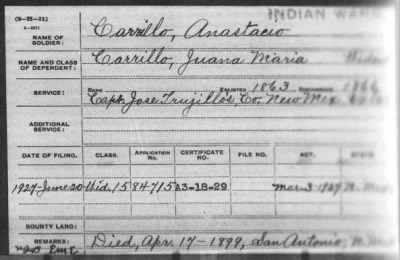 INDIAN WARS
(3-H-11)
NAME OF SOLDIER: Carrillo, Anastacio
NAME AND CLASS OF DEPENDENT: Carrillo, Juana Maria
SERVICE: RANK ENLISTED 1863 DISCHARGED
Capt. Jose Trujillo's, Co. New Mex.
ADDITIONAL SERVICE:
DATE OF FILING. CLASS. APPLICATION No. CERTIFICATE NO. FILE NO. ACT. STATE
1927-June 20 Wid. 1584-715 A-3-18-29 Mar. 3-1927 N. Mex
BOUNTY LAND:
REMARKS: Died, Apr. 17-1899, San Antonio, N. Mex